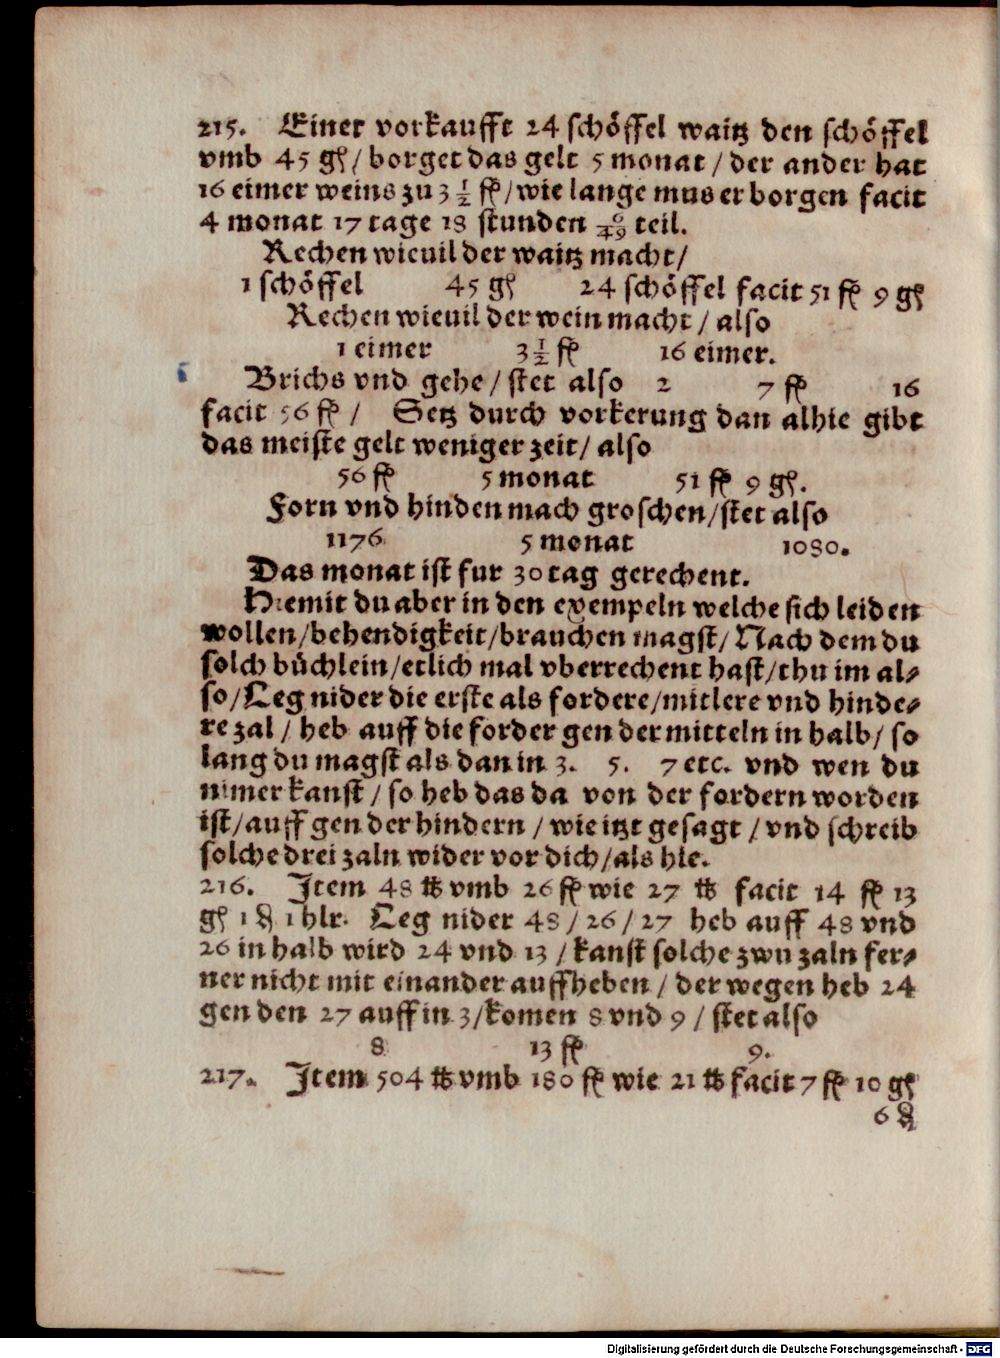 215. Einer vorkaufft 24 schöffel waitz den schöffel
vmb 45 gß / borget das gelt 5 monat / der ander hat
16 eimer weins zu 3 1/2 fß / wie lange mus er borgen facit
4 monat 17 tage 18 stunden 6/49 teil.
Rechen wieuil der waitz macht /
1 schöffel 45 gß 24 schöffel facit 51 fß 9 gß
Rechen wieuil der wein macht / also
1 eimer 3 1/2 fß 16 eimer.
Brichs vnd gehe / stet also 2 7 fß 16
facit 56 fß / Setz durch vorkerung dan alhie gibt
das meiste gelt weniger zeit / also
56 fß 5 monat 51 fß 9 gß.
Forn vnd hinden mach groschen / stet also
1176 5 monat 1080.
Das monat ist fur 30 tag gerechent.
Hiemit du aber in den exempeln welche sich leiden
wollen / behendigkeit / brauchen magst / Nach dem du
solch büchlein / etlich mal vberrechent hast / thu im al⸗
so / Leg nider die erste als fordere / mitlere vnd hinde⸗
re zal / heb auff die forder gen der mitteln in halb / so
lang du magst als dan in 3. 5. 7 etc. vnd wen du
nimer kanst / so heb das da von der fordern worden
ist / auff gen der hindern / wie itzt gesagt / vnd schreib
solche drei zaln wider vor dich / als hie.
216. Item 48 ℔ vmb 26 fß wie 27 ℔ facit 14 fß 13
gß 1 ₰ 1 hlr. Leg nider 48 / 26 / 27 heb auff 48 vnd
26 in halb wird 24 vnd 13 / kanst solche zwu zaln fer⸗
ner nicht mit einander auffheben / der wegen heb 24
gen den 27 auff in 3 / komen 8 vnd 9 / stet also
8 13 fß 9.
217. Item 504 ℔ vmb 180 fß wie 21 ℔ facit 7 fß 10 gß
6 ₰
Digitalisierung gefördert durch die Deutsche Forschungsgemeinschaft - DFG